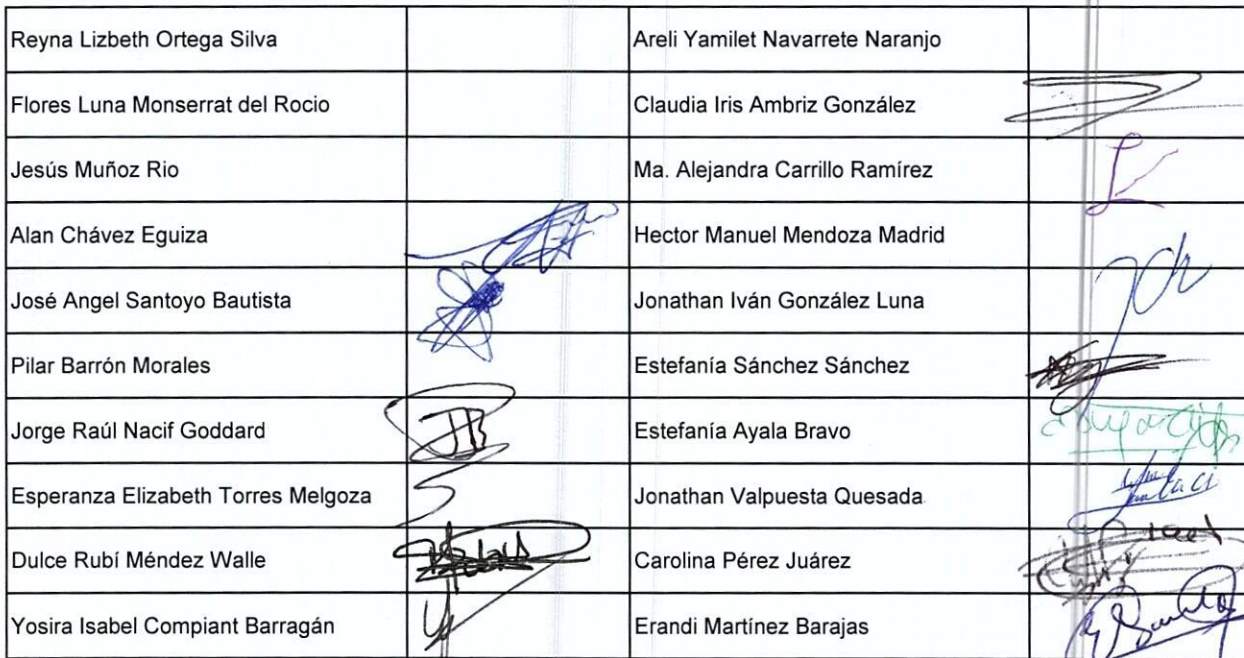 Reyna Lizbeth Ortega Silva
Areli Yamilet Navarrete Naranjo
Flores Luna Monserrat del Rocio
Claudia Iris Ambriz González
Jesús Muñoz Rio
Ma. Alejandra Carrillo Ramírez
Alan Chávez Eguiza
Hector Manuel Mendoza Madrid
José Angel Santoyo Bautista
Jonathan Iván González Luna
Pilar Barrón Morales
Estefanía Sánchez Sánchez
Jorge Raúl Nacif Goddard
Estefanía Ayala Bravo
Esperanza Elizabeth Torres Melgoza
Jonathan Valpuesta Quesada
Dulce Rubí Méndez Walle
Carolina Pérez Juárez
Yosira Isabel Compiant Barragán
Erandi Martínez Barajas